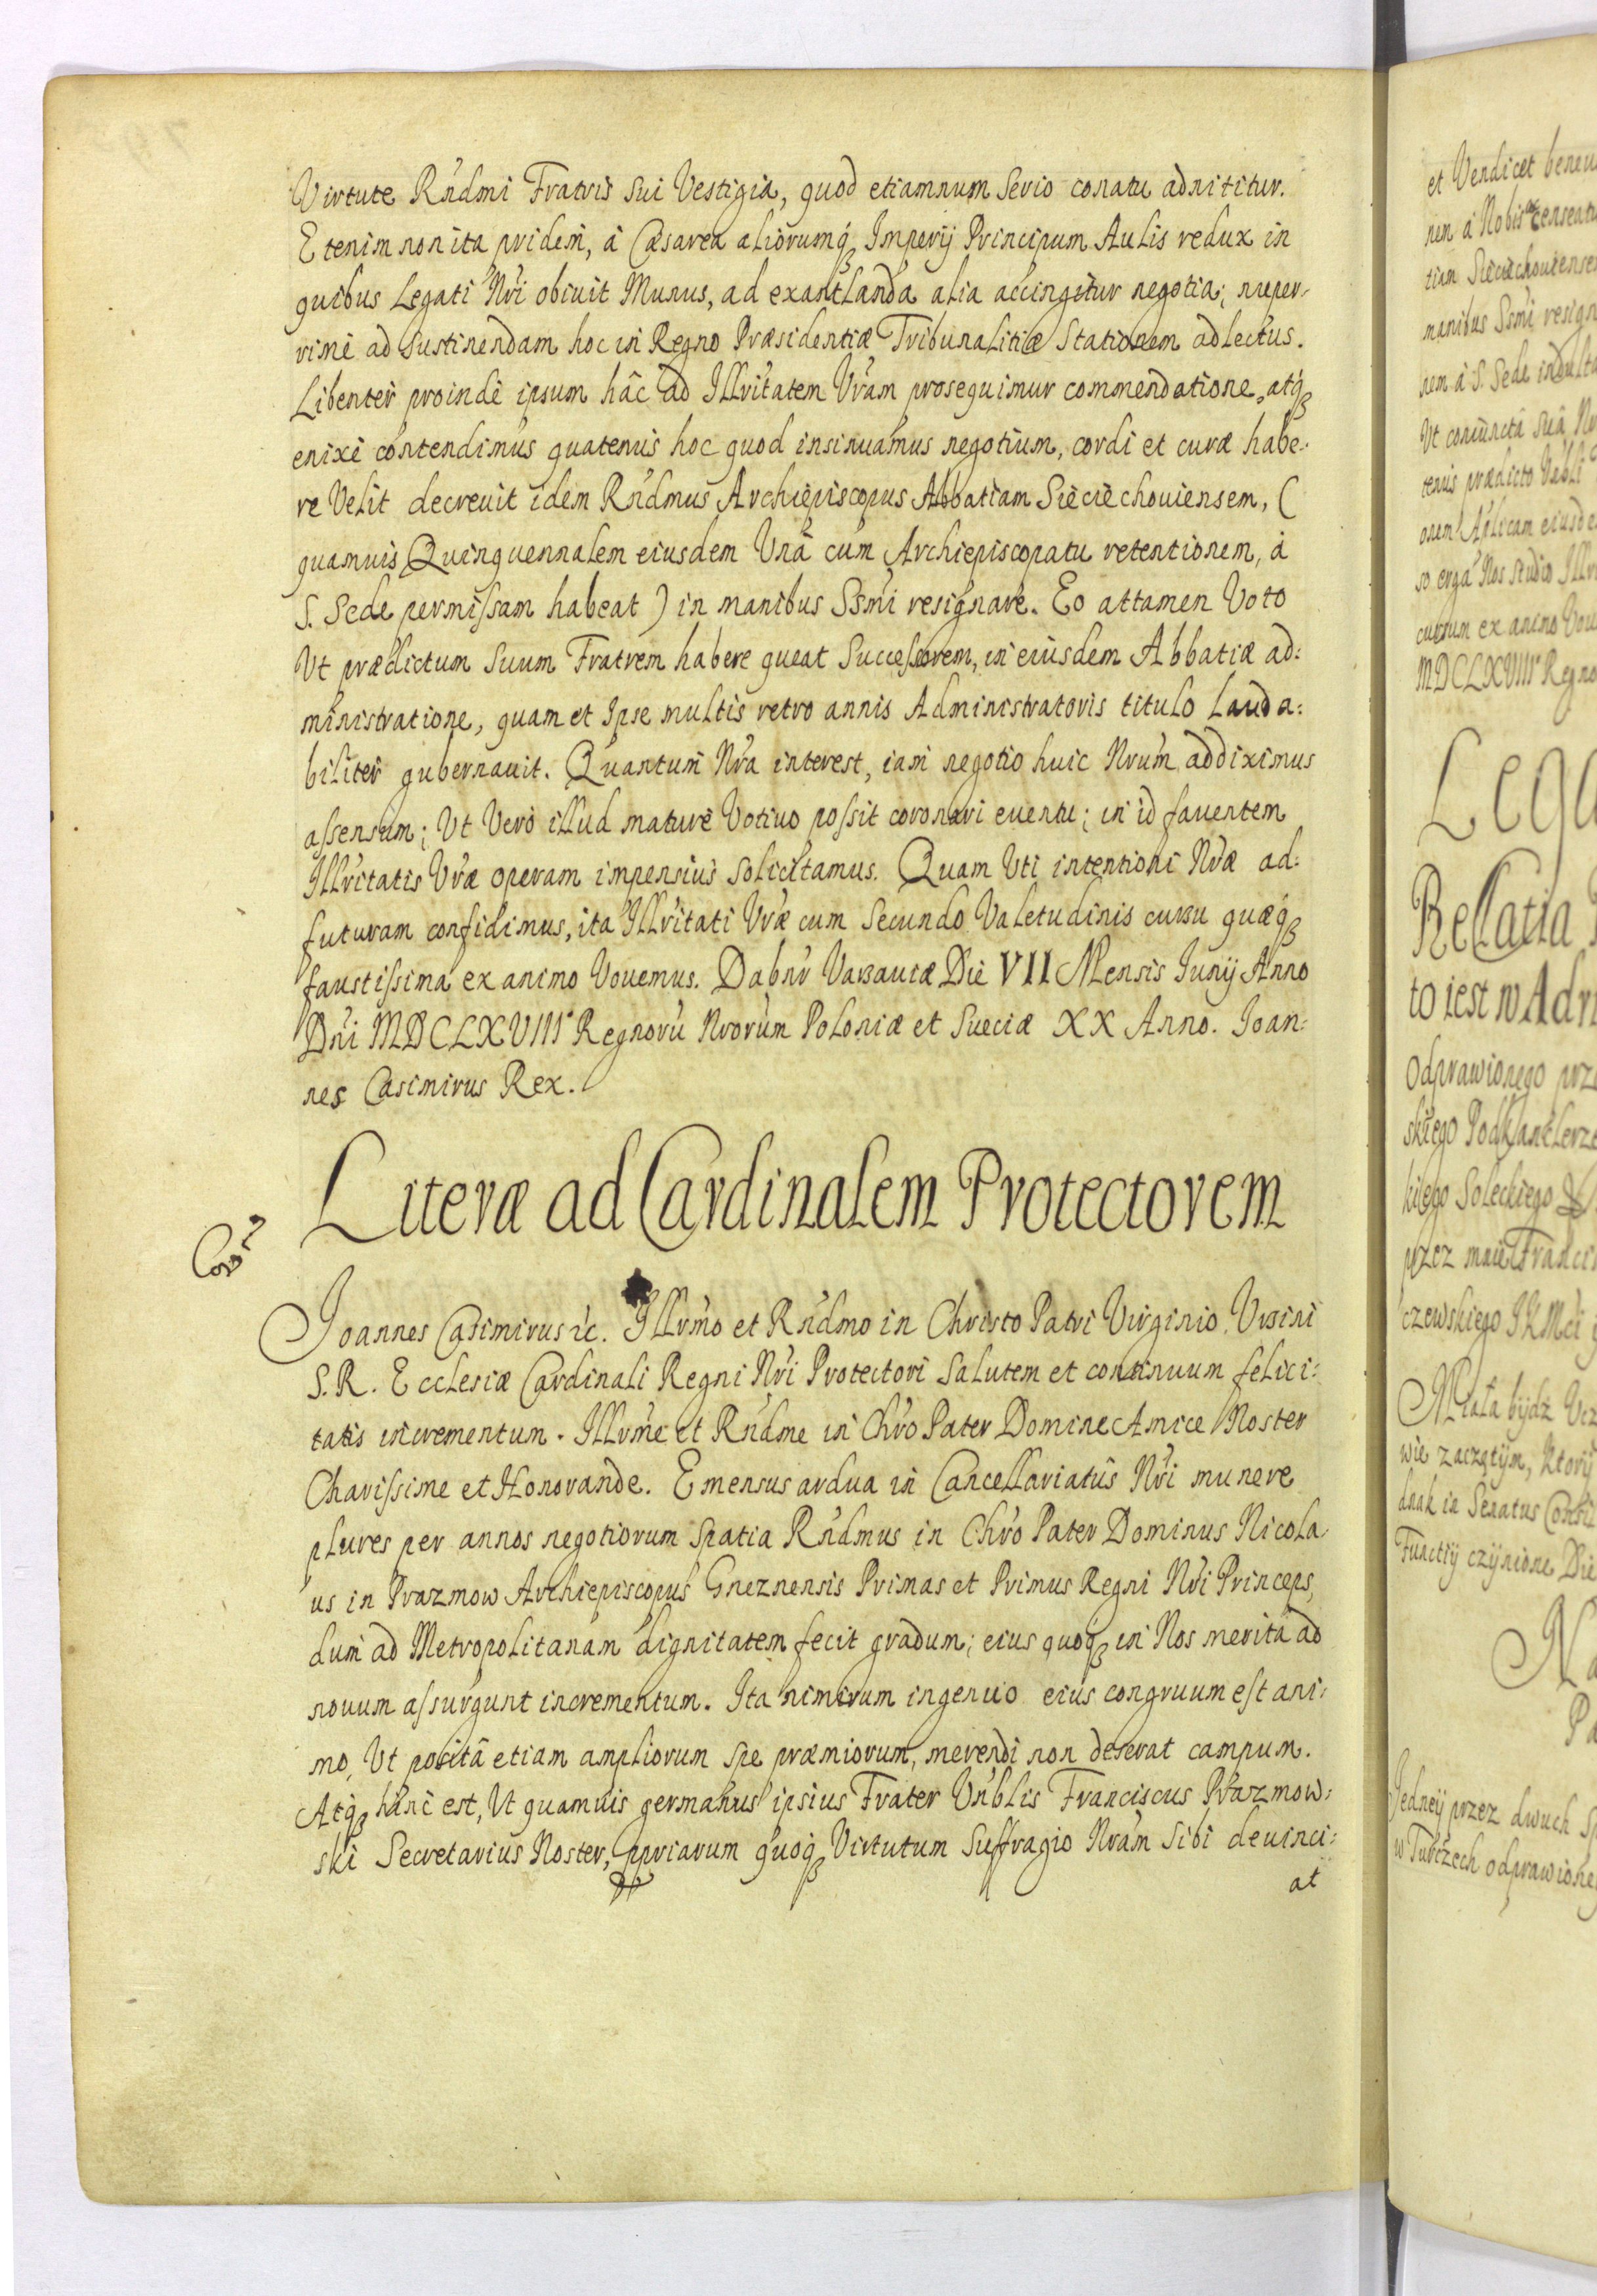 Virtute Rndmi Fratris sui Vestigia, quod etiamnum serio conatu adnititur.
Etenim non ita pridem, à Cæsarea aliorumq Imperij Principum Aulis redux in
quibus Legati Nri obiuit Munus, ad exantlanda alia accingitur negotia; nuper-
rimè ad sustinendam hoc in Regno Præsidentiæ Tribunalitiæ Stationem adlectus.
Libenter proindè ipsum hâc ad Illritatem Vram prosequimur commendatione, atq
enixè contendimus quatenus hoc quod insinuamus negotium, cordi et curæ habe-
re Velit decreuit idem Rndmus Archiepiscopus Abbatiam Sieciechouiensem, (
quamuis Quinquennalem eiusdem Unà cum Archiepiscopatu retentionem, à
S. Sede permissam habeat ) in manibus Ssmi resignare. Eo attamen Voto
Ut prædictum Suum Fratrem habere queat Successorem, in eiusdem Abbatiæ ad:
ministratione, quam et Ipse multis retro annis Administratoris titulo lauda:
biliter gubernauit. Quantum Nra interest, iam negotio huic Nrum addiximus
assensum; Ut Verò illud maturè Votiuo possit coronari euentu; in id fauentem
Illritatis Vræ operam impensius solicitamus. Quam Uti intentioni Nræ ad:
futuram confidimus, ita Illritati Vræ cum Secundo Valetudinis cursu quæq
faustissima ex animo Vouemus. Dabnr Varsauiæ Die VII Mensis Junij Anno
Dni MDCLXVIII° Regnorũ Nrorum Poloniæ et Sueciæ XX Anno. Joan:
nes Casimirus Rex.
Literæ ad Cardinalem Protectorem
Joannes Casimirus ic. Illrmo et Rndmo in Christo Patri Virginio Ursini
S.R. Ecclesiæ Cardinali Regni Nri Protectori Salutem et continuum felici:
tatis incrementum. Illrme et Rndme in Chro Pater Domine Amice Noster
Charissime et Honorande. Emensus ardua in Cancellariatûs Nri munere
plures per annos negotiorum spatia Rndmus in Chro Pater Dominus Nicola-
us in Prazmow Archiepiscopus Gneznensis Primas et Primus Regni Nri Princeps,
dum ad Metropolitanam dignitatem fecit gradum; eius quoq in Nos merita ad
nouum assurgunt incrementum. Ita nimirum ingenuo eius congruum est ani:
mo, Ut positâ etiam ampliorum spe præmiorum, merendi non deserat campum.
Atq hinc est, Ut quamuis germanus ipsius Frater Vnblis Franciscus Prazmow:
ski Secretarius Noster, ppriarum quoq Virtutum Suffragio Nram sibi deuinci:
at
et Vendicet beneu
nem à Nobis censeatu
tiam Sieciechouiense
manibus Ssmi resign
nem à S. Sede indulta
Ut coniunctâ suâ
tenus prædicto Vnbli
onem Aplicam eiusde
so erga Nos studio Illri
cursum ex animo Vou
MDCLXVIII° Regno
Lega
Rellatia
to iest w Adri
Odprawionego prze
skiego Podkanclerze
kiego Soleckiego
przez mnie Franci
czewskiego JKMci
Miała bydź
wie zaczętym, ktory
dnak in Senatus Consil
Functij czynione Die
Na
Pa
Jedney przez dwuch
w Turczech odprawione